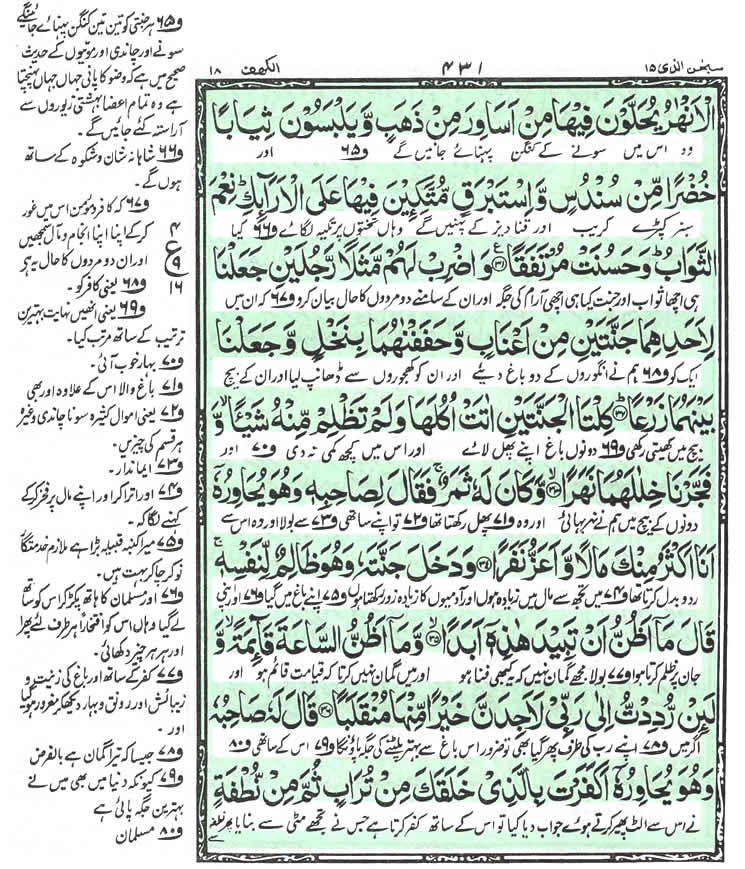 سبحٰن الذی ۱۵
۴۳۱
الکهف ۱۸
الْاَنْهٰرُ یُحَلَّوْنَ فِیْهَا مِنْ اَسَاوِرَ مِنْ ذَهَبٍ وَّ یَلْبَسُوْنَ ثِیَابًا
وہ اس میں سونے کے کنگن پہنائے جائیں گے و۶۵ اور
خُضْرًا مِّنْ سُنْدُسٍ وَّ اِسْتَبْرَقٍ مُّتَّكِـِٕیْنَ فِیْهَا عَلَى الْاَرَآىٕكِؕ نِعْمَ
سبز کپڑے کریب اور قناویز کے پہنیں گے وہاں تختوں پر تکیہ لگائے و۶۶ کیا
الثَّوَابُؕ وَ حَسُنَتْ مُرْتَفَقًا۠ ﴿۳۱﴾ وَ اضْرِبْ لَهُمْ مَّثَلًا رَّجُلَیْنِ جَعَلْنَا
ہی اچھا ثواب اور جنت کیا ہی اچھی آرام کی جگہ اور ان کے سامنے دو مردوں کا حال بیان کرو و۶۷ کہ ان میں
لِاَحَدِهِمَا جَنَّتَیْنِ مِنْ اَعْنَابٍ وَّ حَفَفْنٰهُمَا بِنَخْلٍ وَّ جَعَلْنَا
ایک کو و۶۸ ہم نے انگوروں کے دو باغ دیئے اور ان کو کھجوروں سے ڈھانپ لیا اور ان کے بیچ
بَیْنَهُمَا زَرْعًاؕ ﴿۳۲﴾ كِلْتَا الْجَنَّتَیْنِ اٰتَتْ اُكُلَهَا وَ لَمْ تَظْلِمْ مِّنْهُ شَیْــٴًـاۙ وَّ
بیچ میں کھیتی رکھی و۶۹ دونوں باغ اپنے پھل لائے اور اس میں کچھ کمی نہ دی و۷۰ اور
فَجَّرْنَا خِلٰلَهُمَا نَهَرًاۙ ﴿۳۳﴾ وَّ كَانَ لَهٗ ثَمَرٌۚ فَقَالَ لِصَاحِبِهٖ وَ هُوَ یُحَاوِرُهٗۤ
دونوں کے بیچ میں ہم نے نہر بہائی اور وہ و۷۱ پھل رکھتا تھا و۷۲ تو اپنے ساتھی و۷۳ سے بولا اور وہ اس سے
اَنَا اَكْثَرُ مِنْكَ مَالًا وَّ اَعَزُّ نَفَرًا ﴿۳۴﴾ وَ دَخَلَ جَنَّتَهٗ وَ هُوَ ظَالِمٌ لِّنَفْسِهٖۚ
ردو بدل کرتا تھا و۷۴ میں تجھ سے مال میں زیادہ ہوں اور آدمیوں کا زیادہ زور رکھتا ہوں و۷۵ اپنے باغ میں گیا و۷۶ اور اپنی
قَالَ مَاۤ اَظُنُّ اَنْ تَبِیْدَ هٰذِهٖۤ اَبَدًاۙ ﴿۳۵﴾ وَّ مَاۤ اَظُنُّ السَّاعَةَ قَآىٕمَةًۙ وَّ
جان پر ظلم کرتا ہوا و۷۷ بولا مجھے گمان نہیں کہ یہ کبھی فنا ہو اور میں گمان نہیں کرتا کہ قیامت قائم ہو اور
لَىٕنْ رُّدِدْتُّ اِلٰى رَبِّیْ لَاَجِدَنَّ خَیْرًا مِّنْهَا مُنْقَلَبًاۚ ﴿۳۶﴾ قَالَ لَهٗ صَاحِبُهٗ
اگر میں و۷۸ اپنے رب کی طرف پھر گیا بھی تو ضرور اس باغ سے بہتر پلٹنے کی جگہ پاؤنگا و۷۹ اس کے ساتھی و۸۰
وَ هُوَ یُحَاوِرُهٗۤ اَكَفَرْتَ بِالَّذِیْ خَلَقَكَ مِنْ تُرَابٍ ثُمَّ مِنْ نُّطْفَةٍ
نے اس سے الٹ پھیر کرتے ہوئے جواب دیا کیا تو اس کے ساتھ کفر کرتا ہے جس نے تجھے مٹی سے بنایا پھر نطفہ
و۶۵ ہر جنتی کو تین تین کنگن پہنائے جائینگے
سونے اور چاندی اور موتیوں کے حدیث
صحیح میں ہے کہ وضو کا پانی جہاں جہاں پہنچتا
ہے وہ تمام اعضا بہشتی زیوروں سے
آراستہ کئے جائیں گے۔
و۶۶ شاہانہ شان و شکوہ کے ساتھ
ہوں گے۔
و۶۷ کہ کافر و مومن اس میں غور
کر کے اپنا اپنا انجام و مآل سمجھیں
اور ان دو مردوں کا حال یہ ہے
و۶۸ یعنی کافر کو۔
۴
ع
۹
۱۶
و۶۹ یعنی انھیں نہایت بہترین
ترتیب کے ساتھ مرتب کیا۔
و۷۰ بہار خوب آئی۔
و۷۱ باغ والا اس کے علاوہ اور بھی
و۷۲ یعنی اموال کثیرہ سونا چاندی وغیرہ
ہر قسم کی چیزیں۔
و۷۳ ایماندار۔
و۷۴ اور اترا کر اور اپنے مال پر فخر کرکے
کہنے لگا کہ۔
و۷۵ میرا کنبہ قبیلہ بڑا ہے ملازم خدمتگار
نوکر چاکر بہت ہیں۔
و۷۶ اور مسلمان کا ہاتھ پکڑ کر اس کو ساتھ
لے گیا وہاں اس کو افتخاراً ہر طرف لئے پھرا
اور ہر ہر چیز دکھائی۔
و۷۷ کفر کے ساتھ اور باغ کی زینت و
زیبائش اور رونق و بہار دیکھکر مغرور ہوگیا
اور۔
و۷۸ جیسا کہ تیرا گمان ہے بالفرض
و۷۹ کیونکہ دنیا میں بھی میں نے
بہترین جگہ پائی ہے
و۸۰ مسلمان